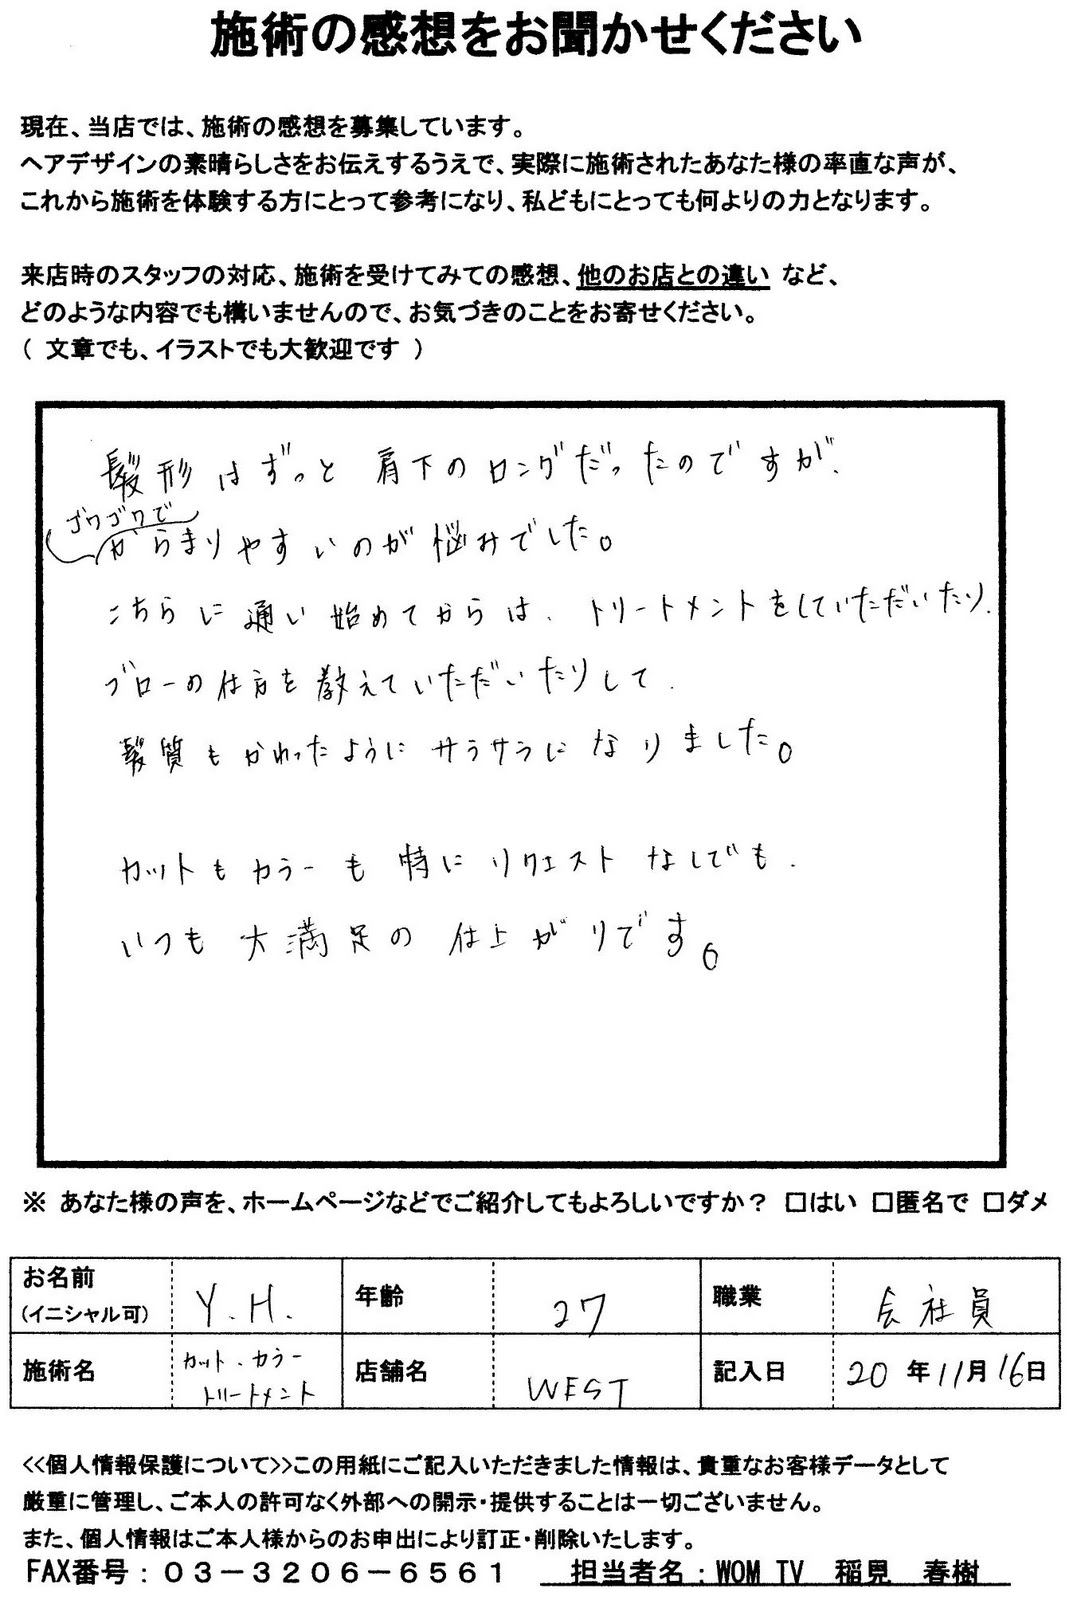 施術の感想をお聞かせください
現在、当店では、施術の感想を募集しています。
ヘアデザインの素晴らしさをお伝えするうえで、実際に施術されたあなた様の率直な声が、
これから施術を体験する方にとって参考になり、私どもにとっても何よりの力となります。
来店時のスタッフの対応、施術を受けてみての感想、他のお店との違い など、
どのような内容でも構いませんので、お気づきのことをお寄せください。
( 文章でも、イラストでも大歓迎です )
髪形はずっと肩下のロングだったのですが、
ゴワゴワで
からまりやすいのが悩みでした。
こちらに通い始めてからは、トリートメントをしていただいたり、
ブローの仕方を教えていただいたりして、
髪質もかわったようにサラサラになりました。
カットもカラーも特にリクエストなしでも、
いつも大満足の仕上がりです。
※ あなた様の声を、ホームページなどでご紹介してもよろしいですか? □はい □匿名で □ダメ
お名前 (イニシャル可) Y.H. 年齢 27 職業 会社員
施術名 カット・カラー トリートメント 店舗名 WEST 記入日 20年11月16日
<<個人情報保護について>>この用紙にご記入いただきました情報は、貴重なお客様データとして
厳重に管理し、ご本人の許可なく外部への開示・提供することは一切ございません。
また、個人情報はご本人様からのお申出により訂正・削除いたします。
FAX番号:03-3206-6561 担当者名:WOM TV 稲見 春樹